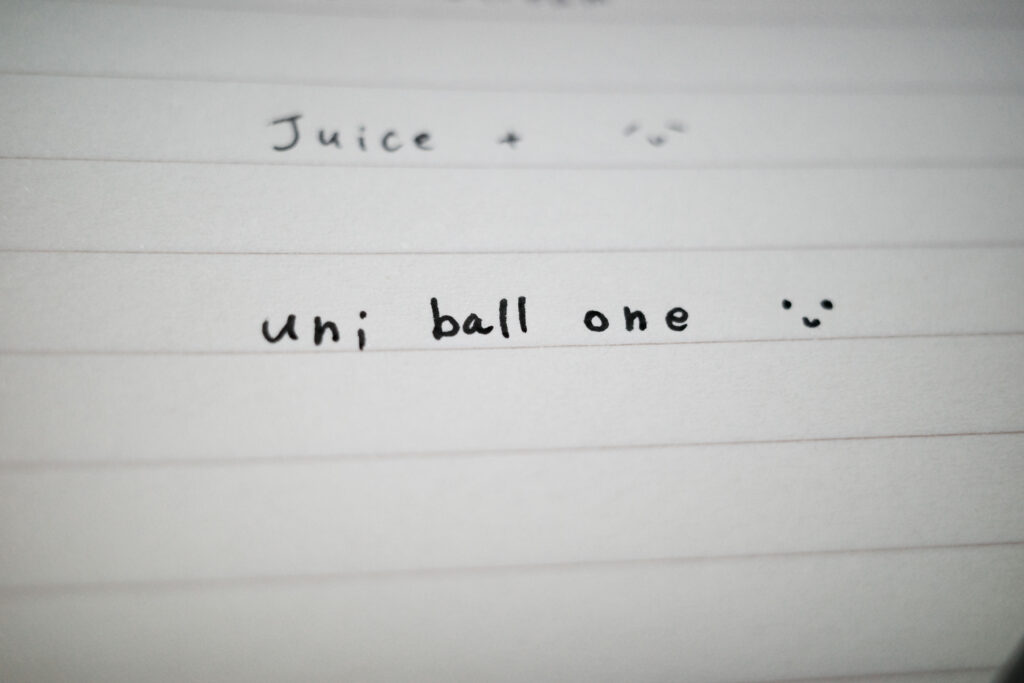 Juice +
uni ball one